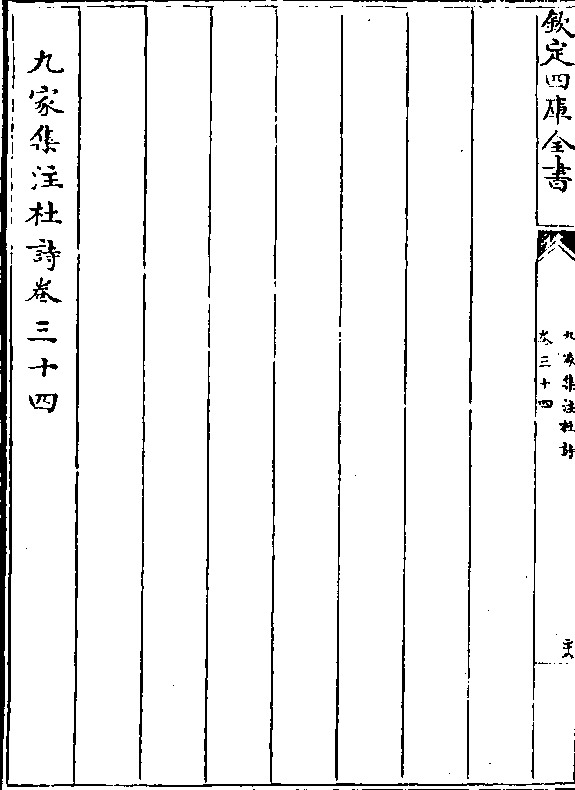 欽定四庫全書
九家集注杜詩
卷三十四
二十八
九家集注杜詩卷三十四